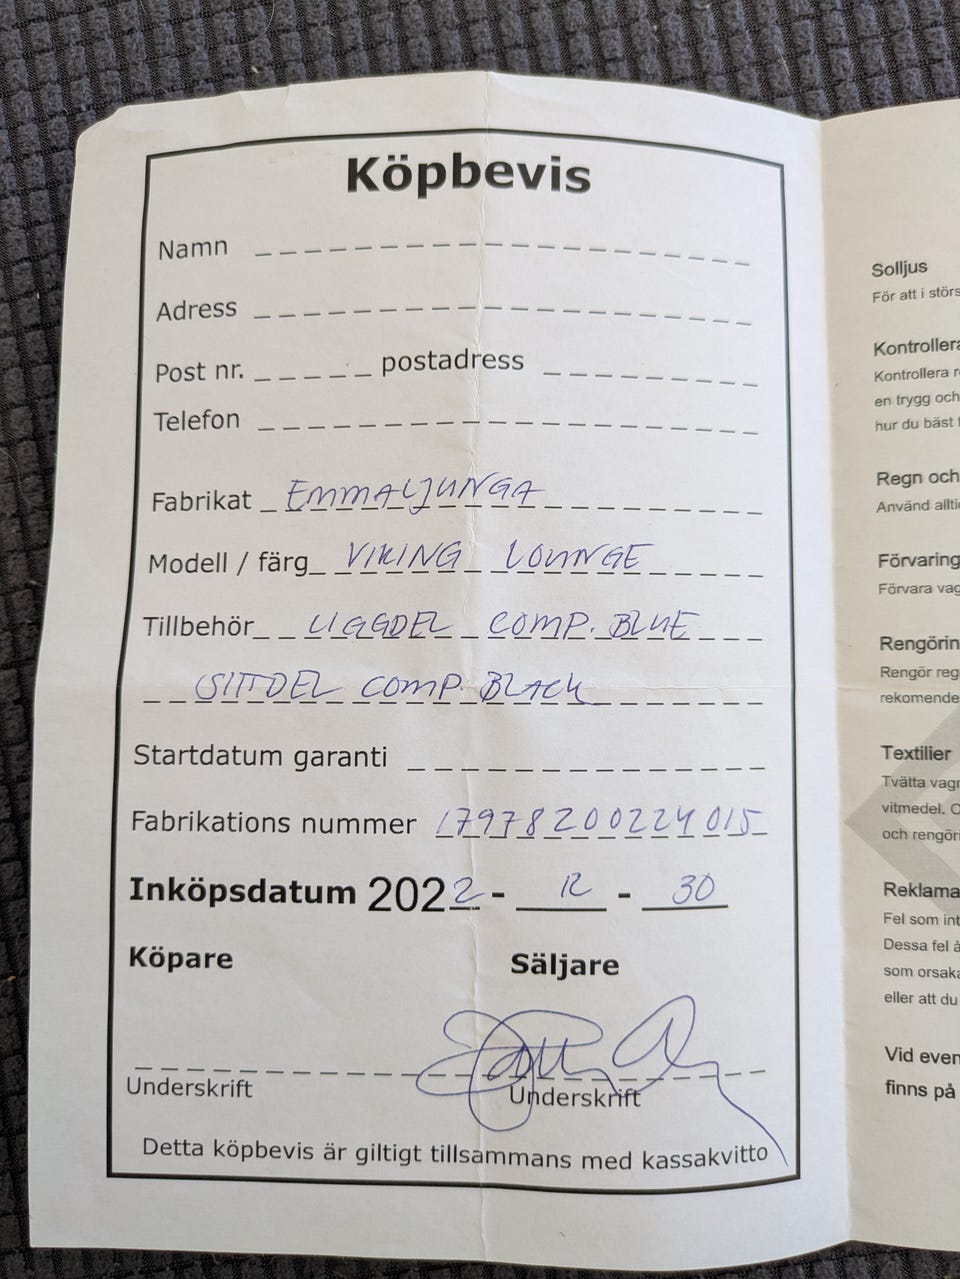 Köpbevis
Namn
Adress
Post nr. postadress
Telefon
Fabrikat EMMALJUNGA
Modell / färg VIKING LOUNGE
Tillbehör LIGGDEL COMP. BLUE
SITTDEL COMP. BLACK
Startdatum garanti
Fabrikations nummer 17978200224015
Inköpsdatum 2022 - 12 - 30
Köpare Säljare
Underskrift Underskrift
Detta köpbevis är giltigt tillsammans med kassakvitto
Solljus
För att i störs
Kontrollera
Kontrollera r
en trygg och
hur du bäst f
Regn och
Använd allti
Förvaring
Förvara vag
Rengörin
Rengör reg
rekomende
Textilier
Tvätta vagn
vitmedel. O
och rengöri
Reklama
Fel som int
Dessa fel å
som orsaka
eller att du
Vid even
finns på